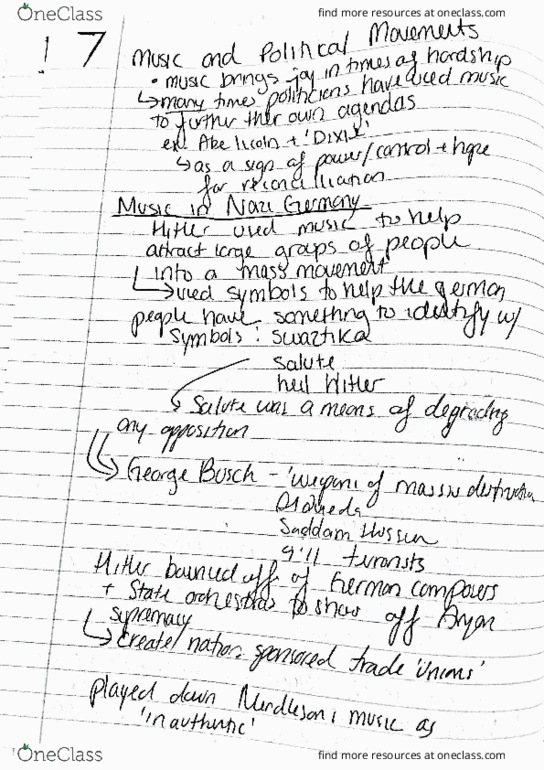 OneClass
find more resources at oneclass.com
! 7
Music and Political Movements
• music brings joy in times of hardship
↳ many times politicians have used music
to further ther own agendas
ex. Abe licoln + 'Dixie'
↳ as a sign of power/control + hope
for reconcilliation
Music in Nazi Germany
Hitler used music to help
attract large groups of people
into a mass movement
↳ used symbols to help the german
people have something to identify w/
symbols: swaztika
salute
heil Hitler
↳ salute was a means of degrading
any opposition
↳ George Busch - 'weapons of massive destruction
Saddam Hussen
9:11 terorists
Hitler bounced off of German composers
+ State orchestras to show off Aryan
supremacy
↳ create nation sponsored trade 'unions'
played down Mendlesons music as
'inauthentic'
OneClass
find more resources at oneclass.com